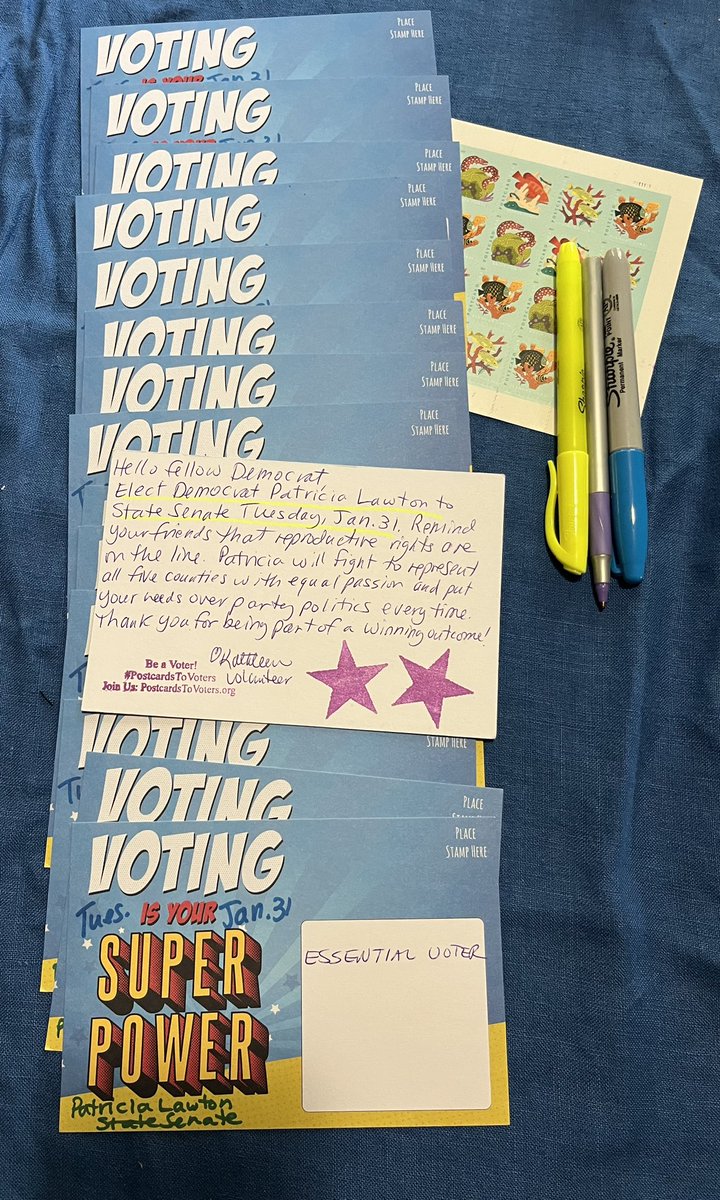 VOTING
PLACE
STAMP HERE
Tues. IS YOUR Jan. 31
VOTING
PLACE
STAMP HERE
VOTING
PLACE
STAMP HERE
VOTING
PLACE
STAMP HERE
VOTING
PLACE
STAMP HERE
VOTING
PLACE
STAMP HERE
VOTING
PLACE
STAMP HERE
VOTING
PLACE
STAMP HERE
Sharpie
Sharpie
Permanent Marker
Hello fellow Democrat,
Elect Democrat Patricia Lawton to
State Senate Tuesday, Jan. 31. Remind
your friends that reproductive rights are
on the line. Patricia will fight to represent
all five counties with equal passion and put
your needs over party politics every time.
Thank you for being part of a winning outcome!
Kathleen
volunteer
Be a Voter!
#PostcardsToVoters
Join Us: PostcardsToVoters.org
VOTING
STAMP HERE
VOTING
PLACE
VOTING
PLACE
STAMP HERE
Tues. IS YOUR Jan. 31
SUPER
POWER
ESSENTIAL VOTER
Patricia Lawton
State Senate